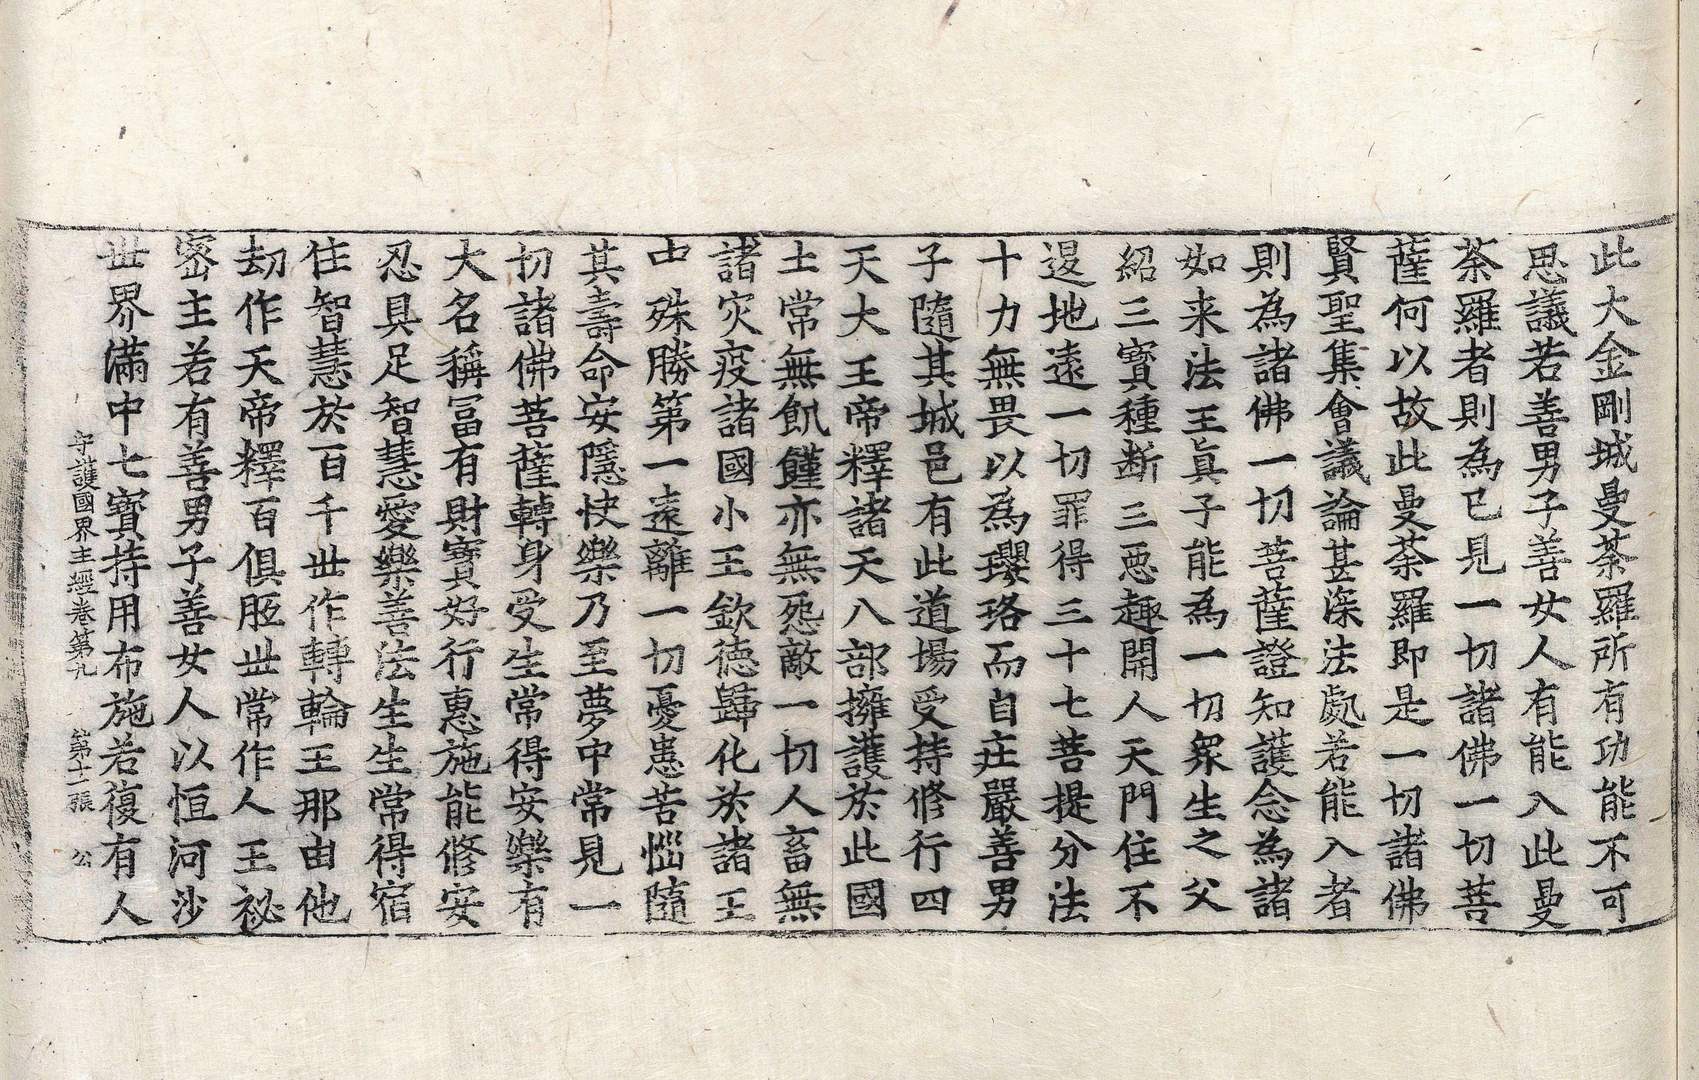 此大金剛城曼荼羅所有功能不可
思議若善男子善女人有能入此曼
荼羅者則為已見一切諸佛一切菩
薩何以故此曼荼羅即是一切諸佛
賢聖集會議論甚深法處若能入者
則為諸佛一切菩薩證知護念為諸
如来法王真子能為一切衆生之父
紹三寶種断三惡趣開人天門住不
退地遠一切罪得三十七菩提分法
十力無畏以為瓔珞而自莊嚴善男
子隨其城邑有此道場受持修行四
天大王帝釋諸天八部擁護於此國
土常無飢饉亦無怨敵一切人畜無
諸灾疫諸國小王欽德歸化於諸王
中殊勝第一遠離一切憂患苦惱隨
其壽命安隱快樂乃至夢中常見一
切諸佛菩薩轉身受生常得安樂有
大名稱冨有財寶好行惠施能修安
忍具足智慧愛樂善法生生常得宿
住智慧於百千世作轉輪王那由他
劫作天帝釋百俱胝世常作人王祕
密主若有善男子善女人以恒河沙
世界滿中七寶持用布施若復有人
守護國界主經卷第九 第十二張 公